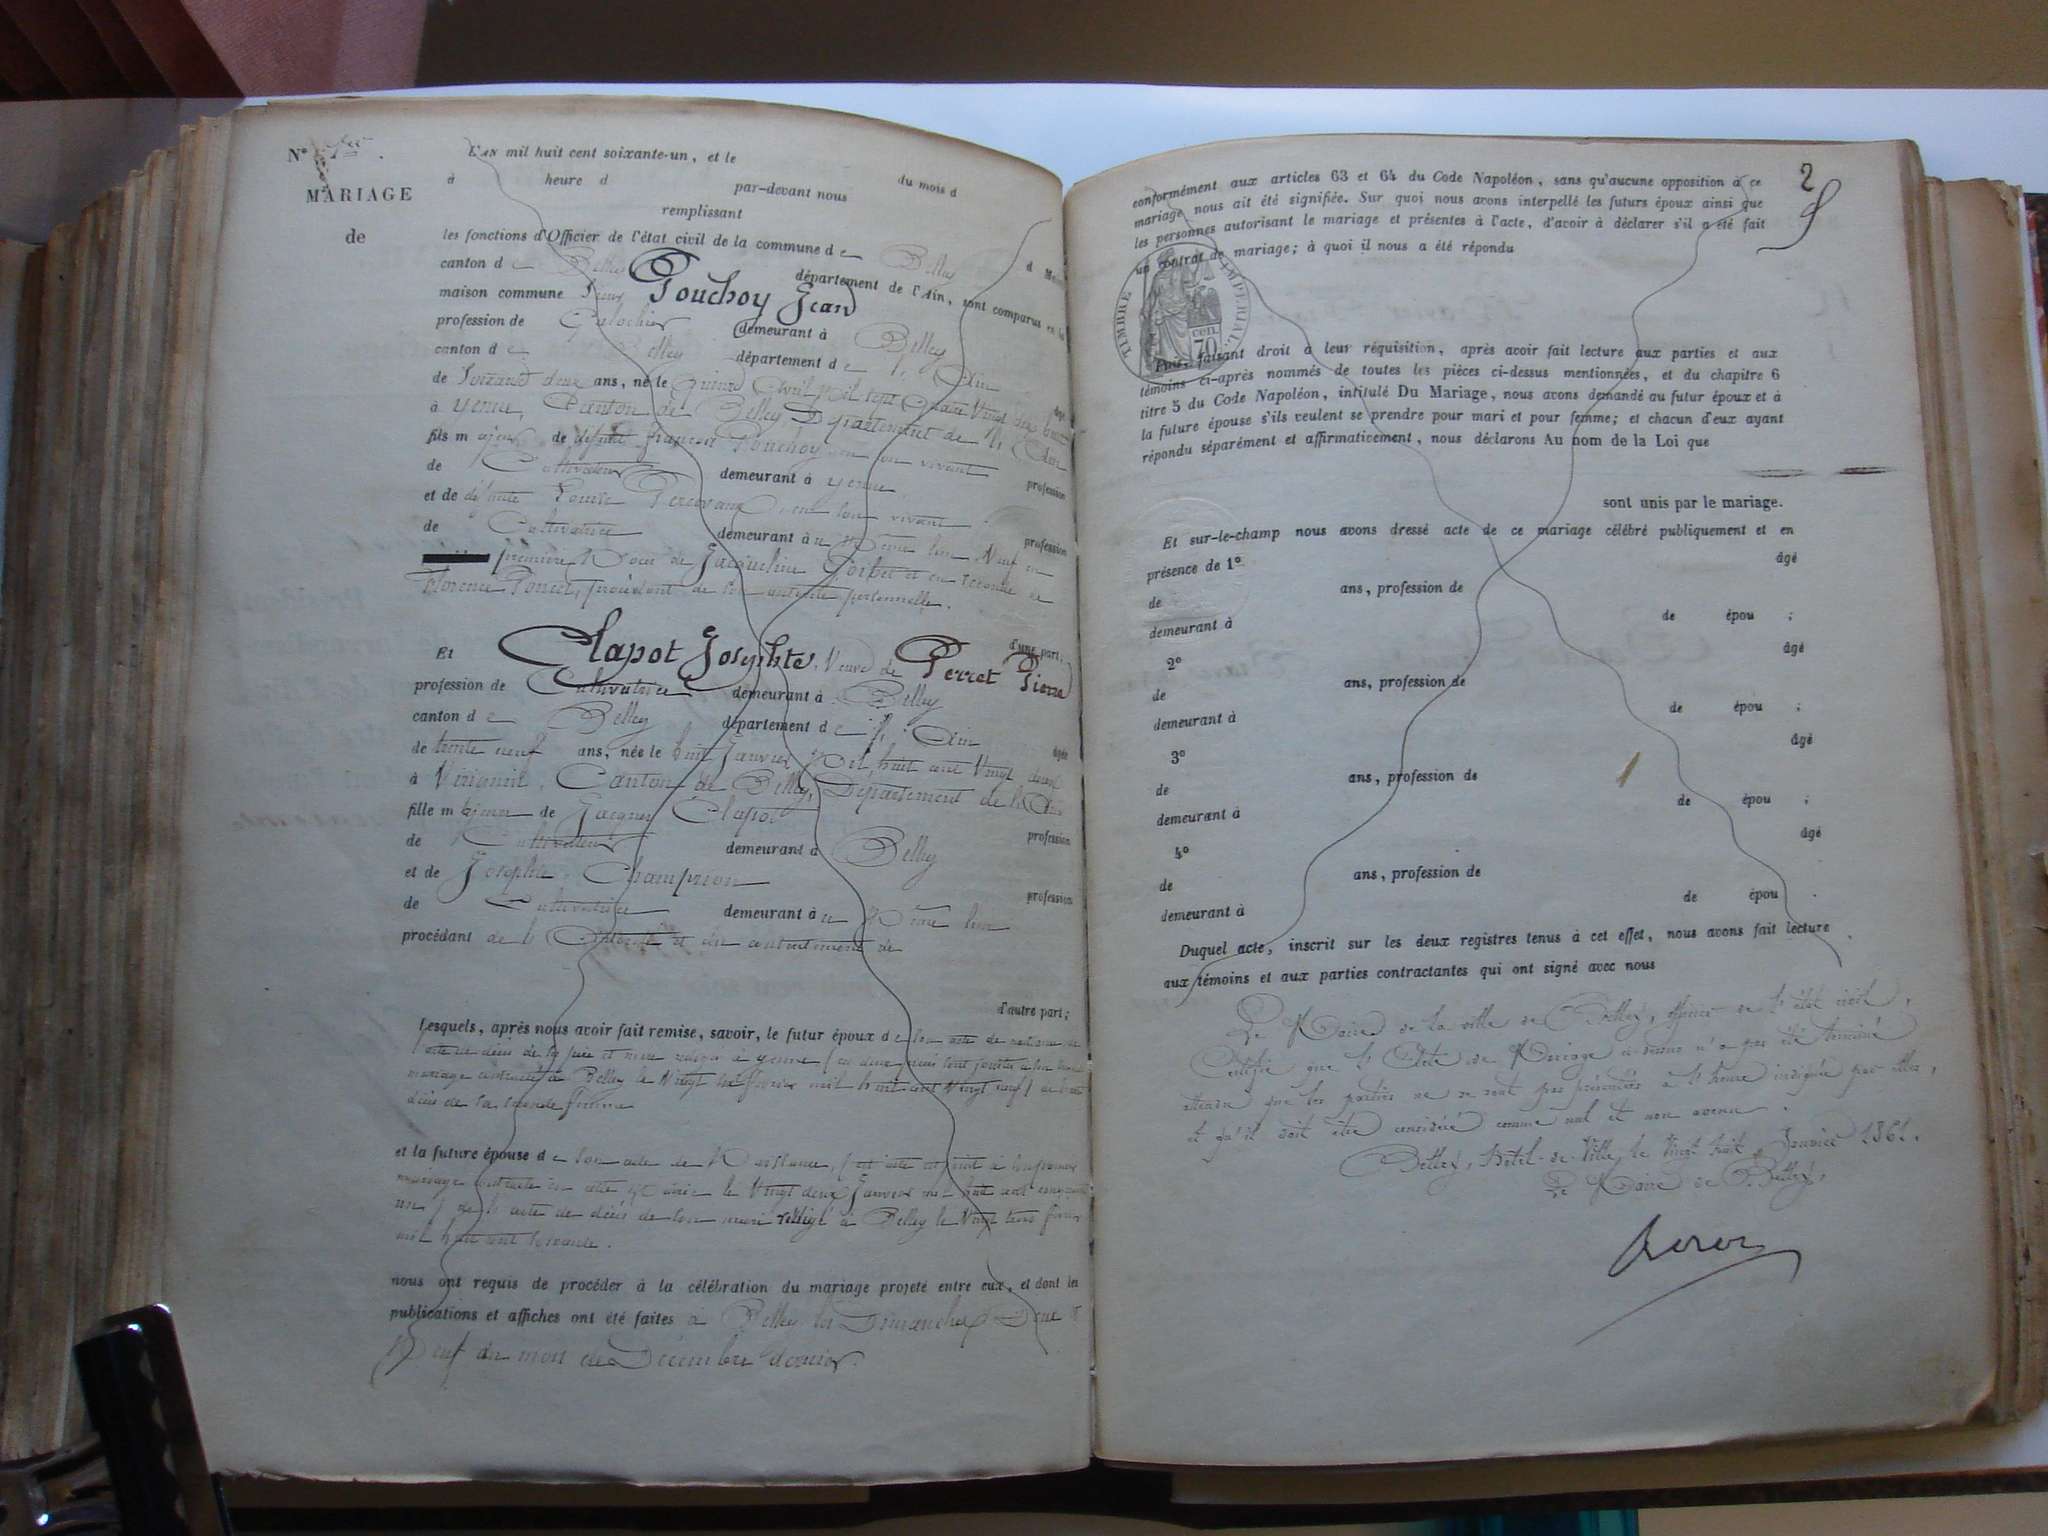 N°
MARIAGE
de
L'AN mil huit cent soixante-un, et le du mois d
à heure d par-devant nous
remplissant
les fonctions d'Officier de l'état civil de la commune de Belley
canton de Belley département de l'Ain, sont comparus en la
maison commune Sieur Pouchoy Jean
profession de Galochier demeurant à Belley
canton de Belley département de l'Ain
âgé
de Soixante deux ans, né le quinze Avril mil sept cent quatre Vingt dix huit
à yenne, Canton de Belley Département de l'Ain
fils majeur de défunt françois Pouchoy en son vivant
profession
de Cultivateur demeurant à yenne
et de défunte Louise en son vivant
profession
de Cultivatrice demeurant au même lieu Veuf en
première Noces de Jacqueline et en seconde de
Florence Poncet, procédant de son autorité personnelle.
d'une part,
Et Clapot Josephte, Veuve de Perret Pierre
profession de Cultivatrice demeurant à Belley
canton de Belley département de l'Ain
âgée
de trente neuf ans, née le huit Janvier mil huit cent Vingt deux
à Virignin, Canton de Belley, Département de l'Ain
fille majeure de Jacques Clapot
profession
de Cultivateur demeurant à Belley
et de Josephte Champion
profession
de Cultivatrice demeurant au même lieu
procédant de l' et du consentement de
d'autre part;
Lesquels, après nous avoir fait remise, savoir, le futur époux de son acte de naissance de
l'acte de décès de ses père et mère rédigés à yenne (ces deux pièces sont jointes à son
mariage contracté à Belley le Vingt février mil huit cent Vingt neuf) de l'acte
décès de sa seconde femme
et la future épouse de son acte de Naissance, (cet acte est joint à son premier
mariage contracté en cette le Vingt deux Janvier mil huit cent cinquante
un) de l'acte de décès de son mari rédigé à Belley le Vingt trois février
mil huit cent soixante.
nous ont requis de procéder à la célébration du mariage projeté entre eux, et dont les
publications et affiches ont été faites à Belley les Dimanches Deux &
Neuf du mois de Décembre dernier.
2
conformément aux articles 63 et 64 du Code Napoléon, sans qu'aucune opposition à ce
mariage nous ait été signifiée. Sur quoi nous avons interpellé les futurs époux ainsi que
les personnes autorisant le mariage et présentes à l'acte, d'avoir à déclarer s'il a été fait
un contrat de mariage; à quoi il nous a été répondu
TIMBRE IMPERIAL
70 cen.
Puis, faisant droit à leur réquisition, après avoir fait lecture aux parties et aux
témoins ci-après nommés de toutes les pièces ci-dessus mentionnées, et du chapitre 6
titre 5 du Code Napoléon, intitulé Du Mariage, nous avons demandé au futur époux et à
la future épouse s'ils veulent se prendre pour mari et pour femme; et chacun d'eux ayant
répondu séparément et affirmativement, nous déclarons Au nom de la Loi que
sont unis par le mariage.
Et sur-le-champ nous avons dressé acte de ce mariage célébré publiquement et en
présence de 1° âgé
de ans, profession de
demeurant à de épou ;
2° âgé
de ans, profession de
demeurant à de épou ;
3° âgé
de ans, profession de
demeurant à de épou ;
4° âgé
de ans, profession de
demeurant à de épou .
Duquel acte, inscrit sur les deux registres tenus à cet effet, nous avons fait lecture
aux témoins et aux parties contractantes qui ont signé avec nous
Le Maire de la ville de Belley, officier de l'état civil,
Certifie que l'Acte de Mariage ci-dessus n'a pas été terminé
attendu que les parties ne se sont pas présentées à l'heure indiquée par elles,
et qu'il doit être considéré comme nul et non avenu.
Belley, Hôtel-de-Ville, le Vingt huit Janvier 1861.
Le Maire de Belley,